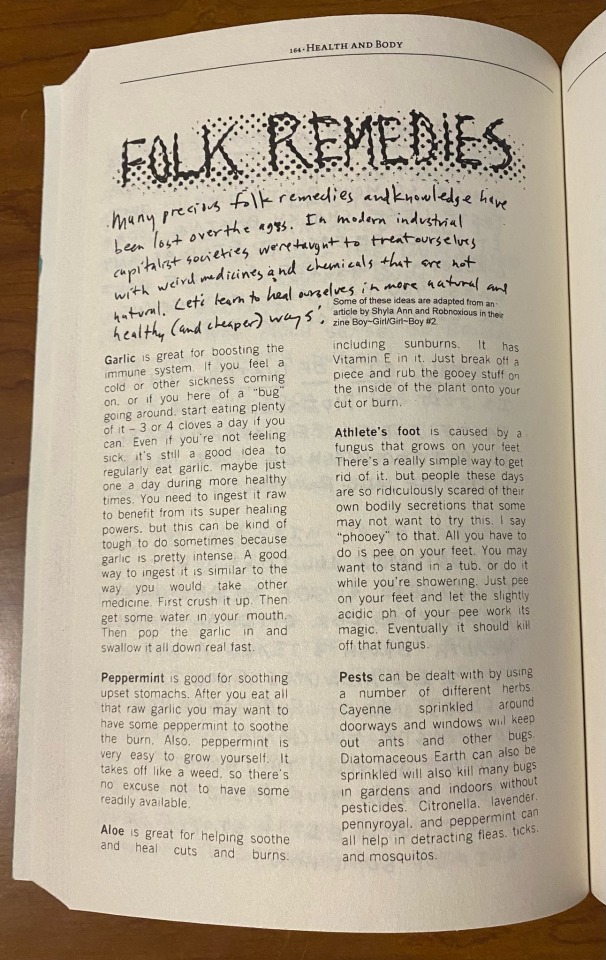 164·Health and Body
FOLK REMEDIES
Many precious folk remedies and knowledge have
been lost over the ages. In modern industrial
capitalist societies we're taught to treat ourselves
with weird medicines and chemicals that are not
natural. Let's learn to heal ourselves in more natural and
healthy (and cheaper) ways!
Some of these ideas are adapted from an
article by Shyla Ann and Robnoxious in their
zine Boy~Girl/Girl~Boy #2.
Garlic is great for boosting the
immune system. If you feel a
cold or other sickness coming
on, or if you here of a "bug"
going around, start eating plenty
of it – 3 or 4 cloves a day if you
can. Even if you're not feeling
sick, it's still a good idea to
regularly eat garlic, maybe just
one a day during more healthy
times. You need to ingest it raw
to benefit from its super healing
powers, but this can be kind of
tough to do sometimes because
garlic is pretty intense. A good
way to ingest it is similar to the
way you would take other
medicine. First crush it up. Then
get some water in your mouth.
Then pop the garlic in and
swallow it all down real fast.
Peppermint is good for soothing
upset stomachs. After you eat all
that raw garlic you may want to
have some peppermint to soothe
the burn. Also, peppermint is
very easy to grow yourself. It
takes off like a weed, so there's
no excuse not to have some
readily available.
Aloe is great for helping soothe
and heal cuts and burns,
including sunburns. It has
Vitamin E in it. Just break off a
piece and rub the gooey stuff on
the inside of the plant onto your
cut or burn.
Athlete's foot is caused by a
fungus that grows on your feet.
There's a really simple way to get
rid of it, but people these days
are so ridiculously scared of their
own bodily secretions that some
may not want to try this. I say
"phooey" to that. All you have to
do is pee on your feet. You may
want to stand in a tub, or do it
while you're showering. Just pee
on your feet and let the slightly
acidic ph of your pee work its
magic. Eventually it should kill
off that fungus.
Pests can be dealt with by using
a number of different herbs.
Cayenne sprinkled around
doorways and windows will keep
out ants and other bugs.
Diatomaceous Earth can also be
sprinkled will also kill many bugs
in gardens and indoors without
pesticides. Citronella, lavender,
pennyroyal, and peppermint can
all help in detracting fleas, ticks,
and mosquitos.